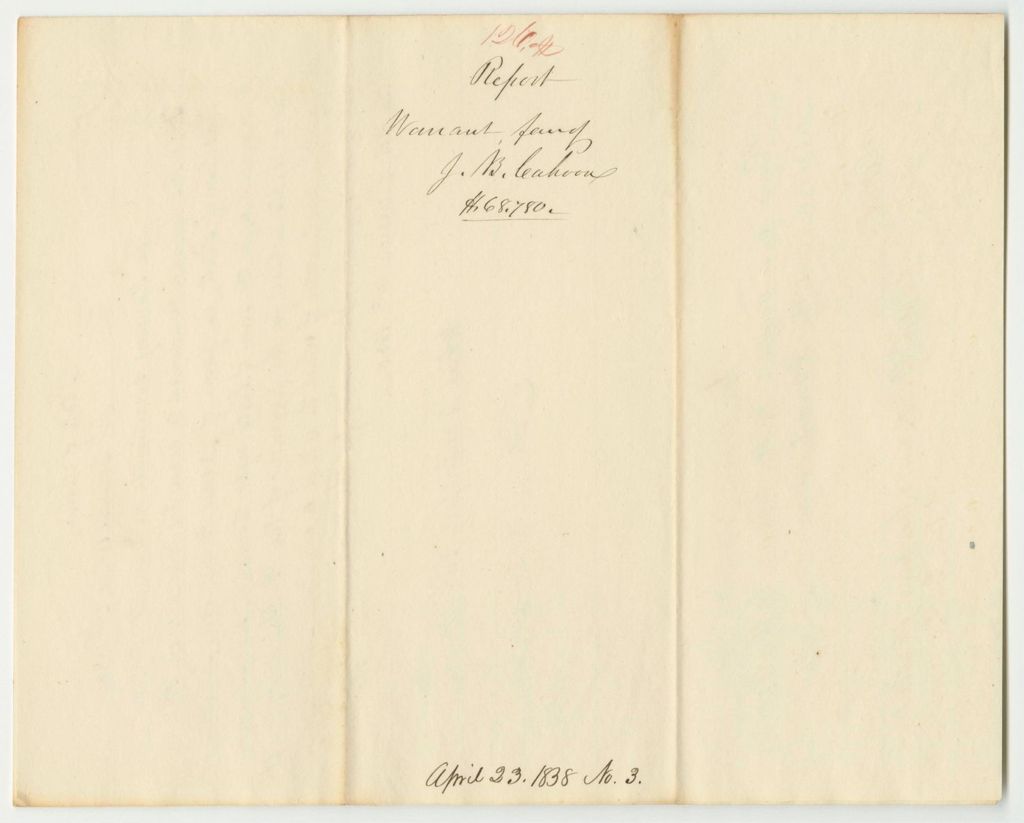 Report
Warrant, favg
J. B. Cahoon
$68.780.
April 23. 1838 No. 3.